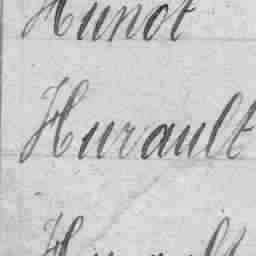 Hunot
Hurault